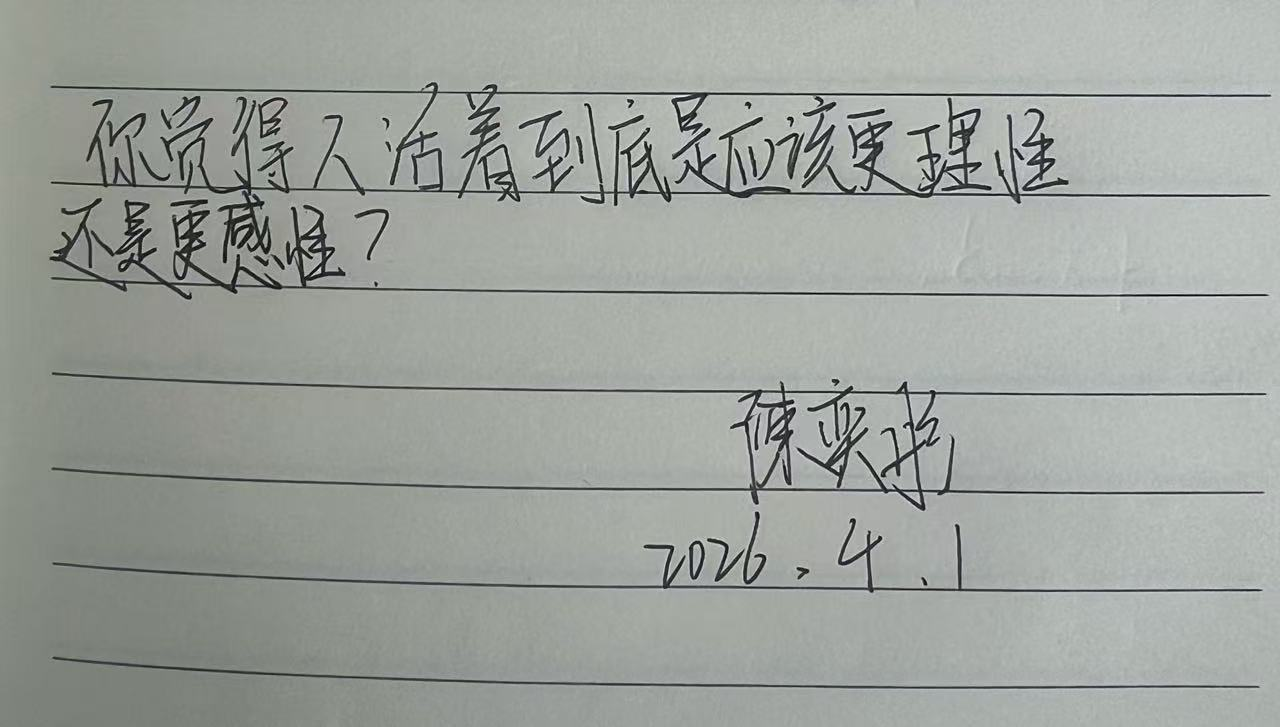 你觉得人活着到底是应该更理性
还是更感性？
陳奕
2026.4.1